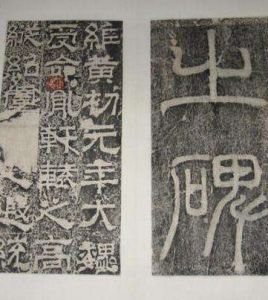 之碑
維黃初元年大魏
受命胤軒轅之高
紹虞之遐統